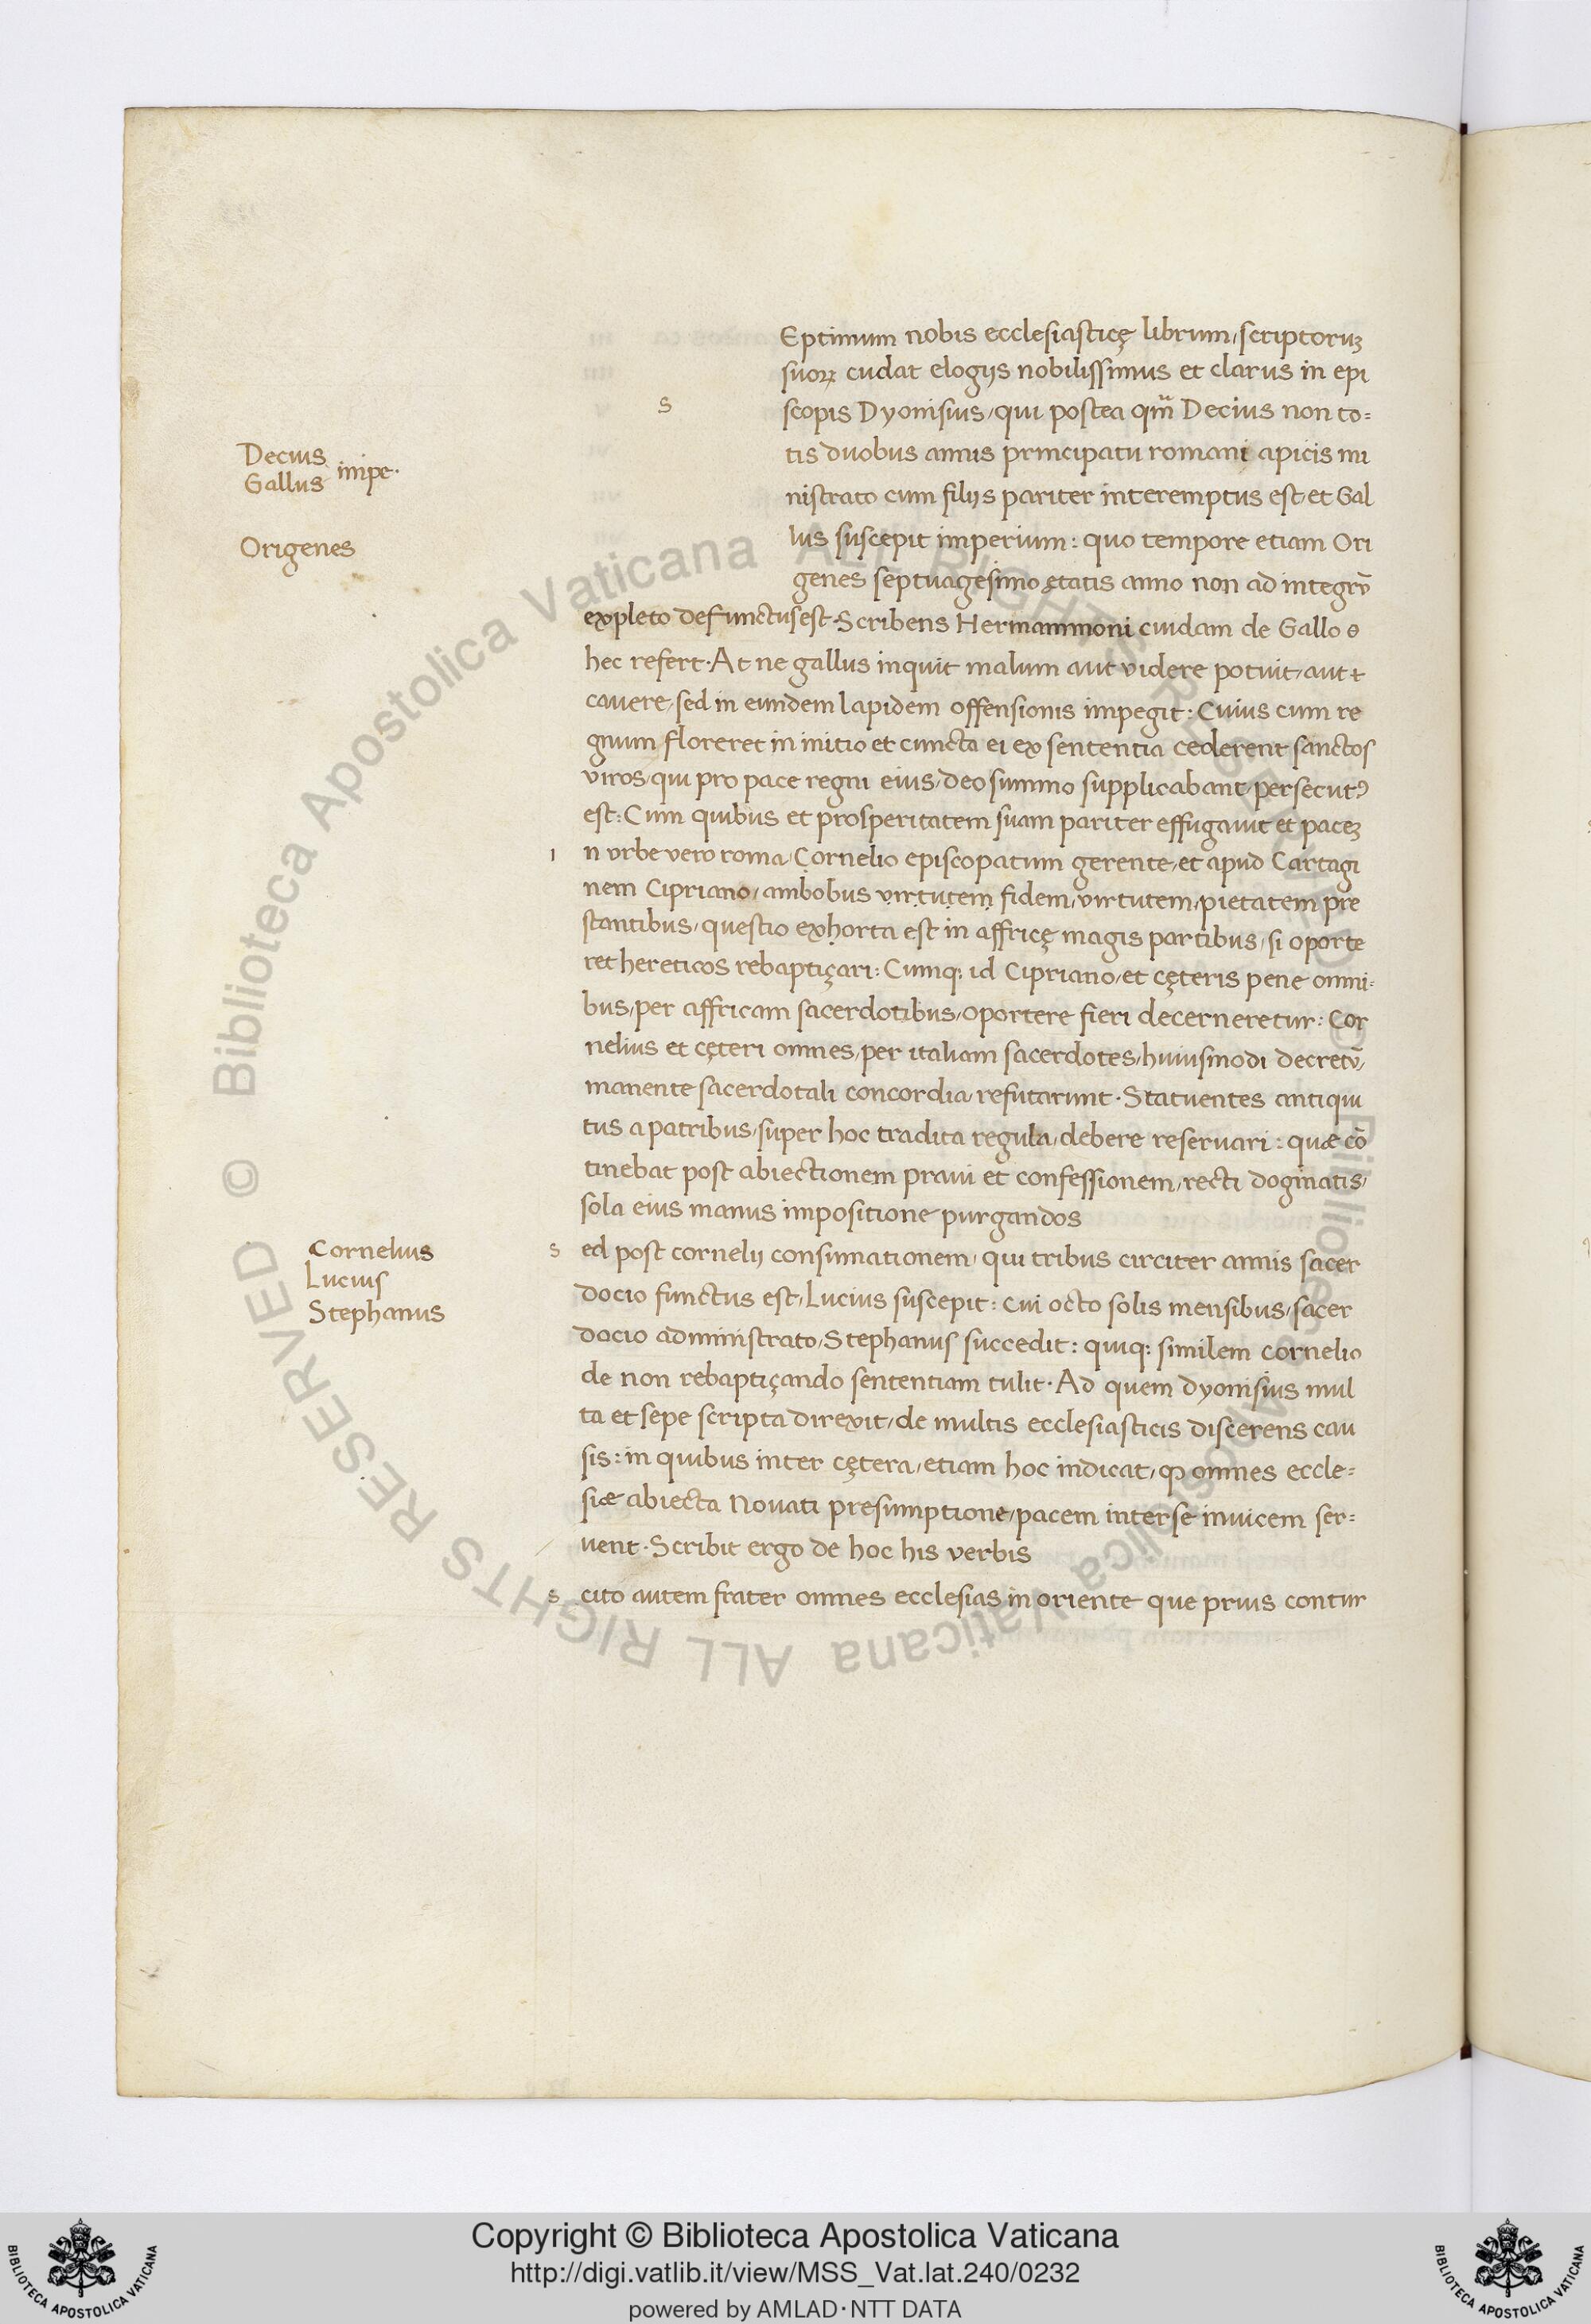 Eptimum nobis ecclesiasticę librum, scriptoruꝫ
suoꝝ cudat elogijs nobilissimus et clarus in epi
s
scopis Dyonisius, qui postea qm̄ Decius non to=
tis duobus annis principatu romani apicis mi
nistrato cum filijs pariter interemptus est, et Gal
lus suscepit imperium: quo tempore etiam Ori
genes septuagesimo ętatis anno non ad integrū
expleto defunctus est. Scribens Hermammoni cuidam de Gallo
hec refert. At ne gallus inquit malum aut videre potuit, aut
cavere, sed in eundem lapidem offensionis impegit: Cuius cum re
gnum floreret in initio et cuncta ei ex sententia cederent sanctos
viros, qui pro pace regni eius, deo summo supplicabant, persecutꝰ
est: Cum quibus et prosperitatem suam pariter effugauit et paceꝫ
I n urbe vero roma, Cornelio episcopatum gerente, et apud Cartagi
nem Cipriano, ambobus virtutem fidem, virtutem, pietatem pre
stantibus, questio exhorta est in affricę magis partibus, si oporte
ret hereticos rebaptiçari: Cumq: id Cipriano, et cęteris pene omni-
bus, per affricam sacerdotibus, oportere fieri decerneretur: Cor
nelius et cęteri omnes, per italiam sacerdotes, huiusmodi decretū,
manente sacerdotali concordia, refutarunt. Statuentes antiqui
tus a patribus, super hoc tradita regula, debere reservari: quæ cō
tinebat post abiectionem praui et confessionem, recti dogmatis,
sola eius manus impositione purgandos
s ed post cornelij consumationem, qui tribus circiter annis sacer
docio functus est, Lucius suscepit: cui octo solis mensibus, sacer
docio administrato, Stephanus succedit: quiq: similem cornelio
de non rebaptiçando sententiam tulit. Ad quem dyonisius mul
ta et sepe scripta direxit, de multis ecclesiasticis discerens cau
sis: in quibus inter cętera, etiam hoc indicat, ꝙ omnes eccle=
siæ abiecta Novati presumptione, pacem inter se invicem ser=
uent. Scribit ergo de hoc his verbis
s cito autem frater omnes ecclesias in oriente que prius contur
Decius
Gallus impe.
Origenes
Cornelius
Lucius
Stephanus
© Biblioteca Apostolica Vaticana ALL RIGHTS RESERVED © Biblioteca Apostolica Vaticana ALL RIGHTS RESERVED
Copyright © Biblioteca Apostolica Vaticana
http://digi.vatlib.it/view/MSS_Vat.lat.240/0232
powered by AMLAD·NTT DATA
BIBLIOTECA APOSTOLICA VATICANA
BIBLIOTECA APOSTOLICA VATICANA